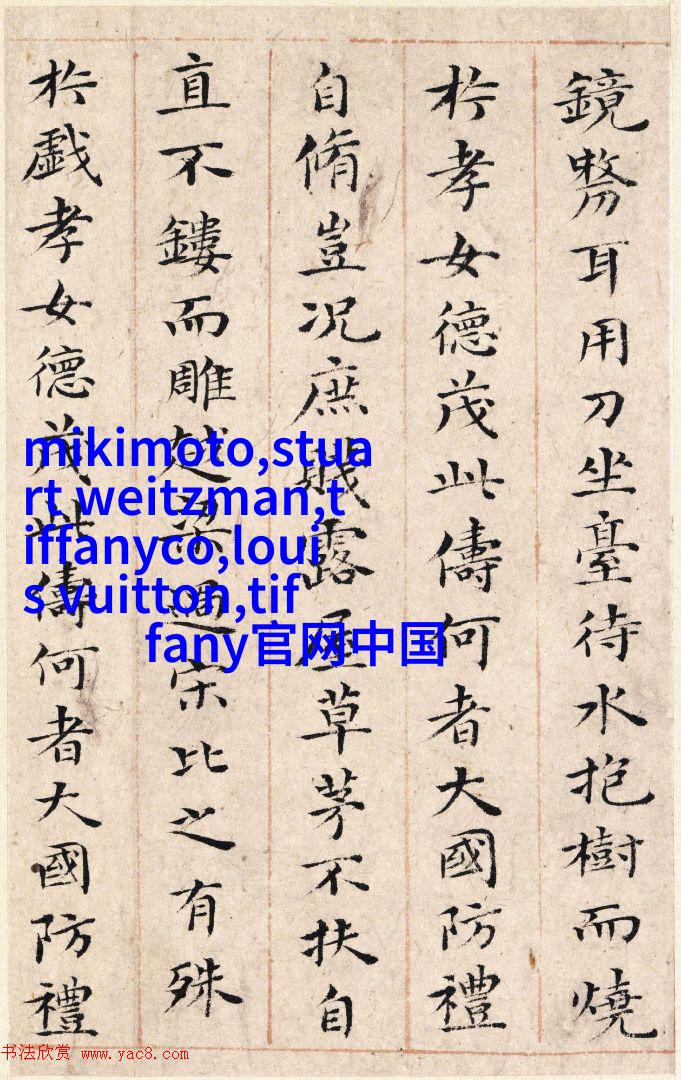 鏡剺耳用刀坐臺待水抱樹而燒
扵孝女德茂此儔何者大國防禮
自脩豈况庶賤露屋草茅不扶自
直不鏤而雕越梁過宋比之有殊
扵戯孝女德茂此儔何者大國防禮
mikimoto,stua
rt weitzman,t
iffanyco,loui
s vuitton,tif
fany官网中国
书法欣赏 www.yac8.com